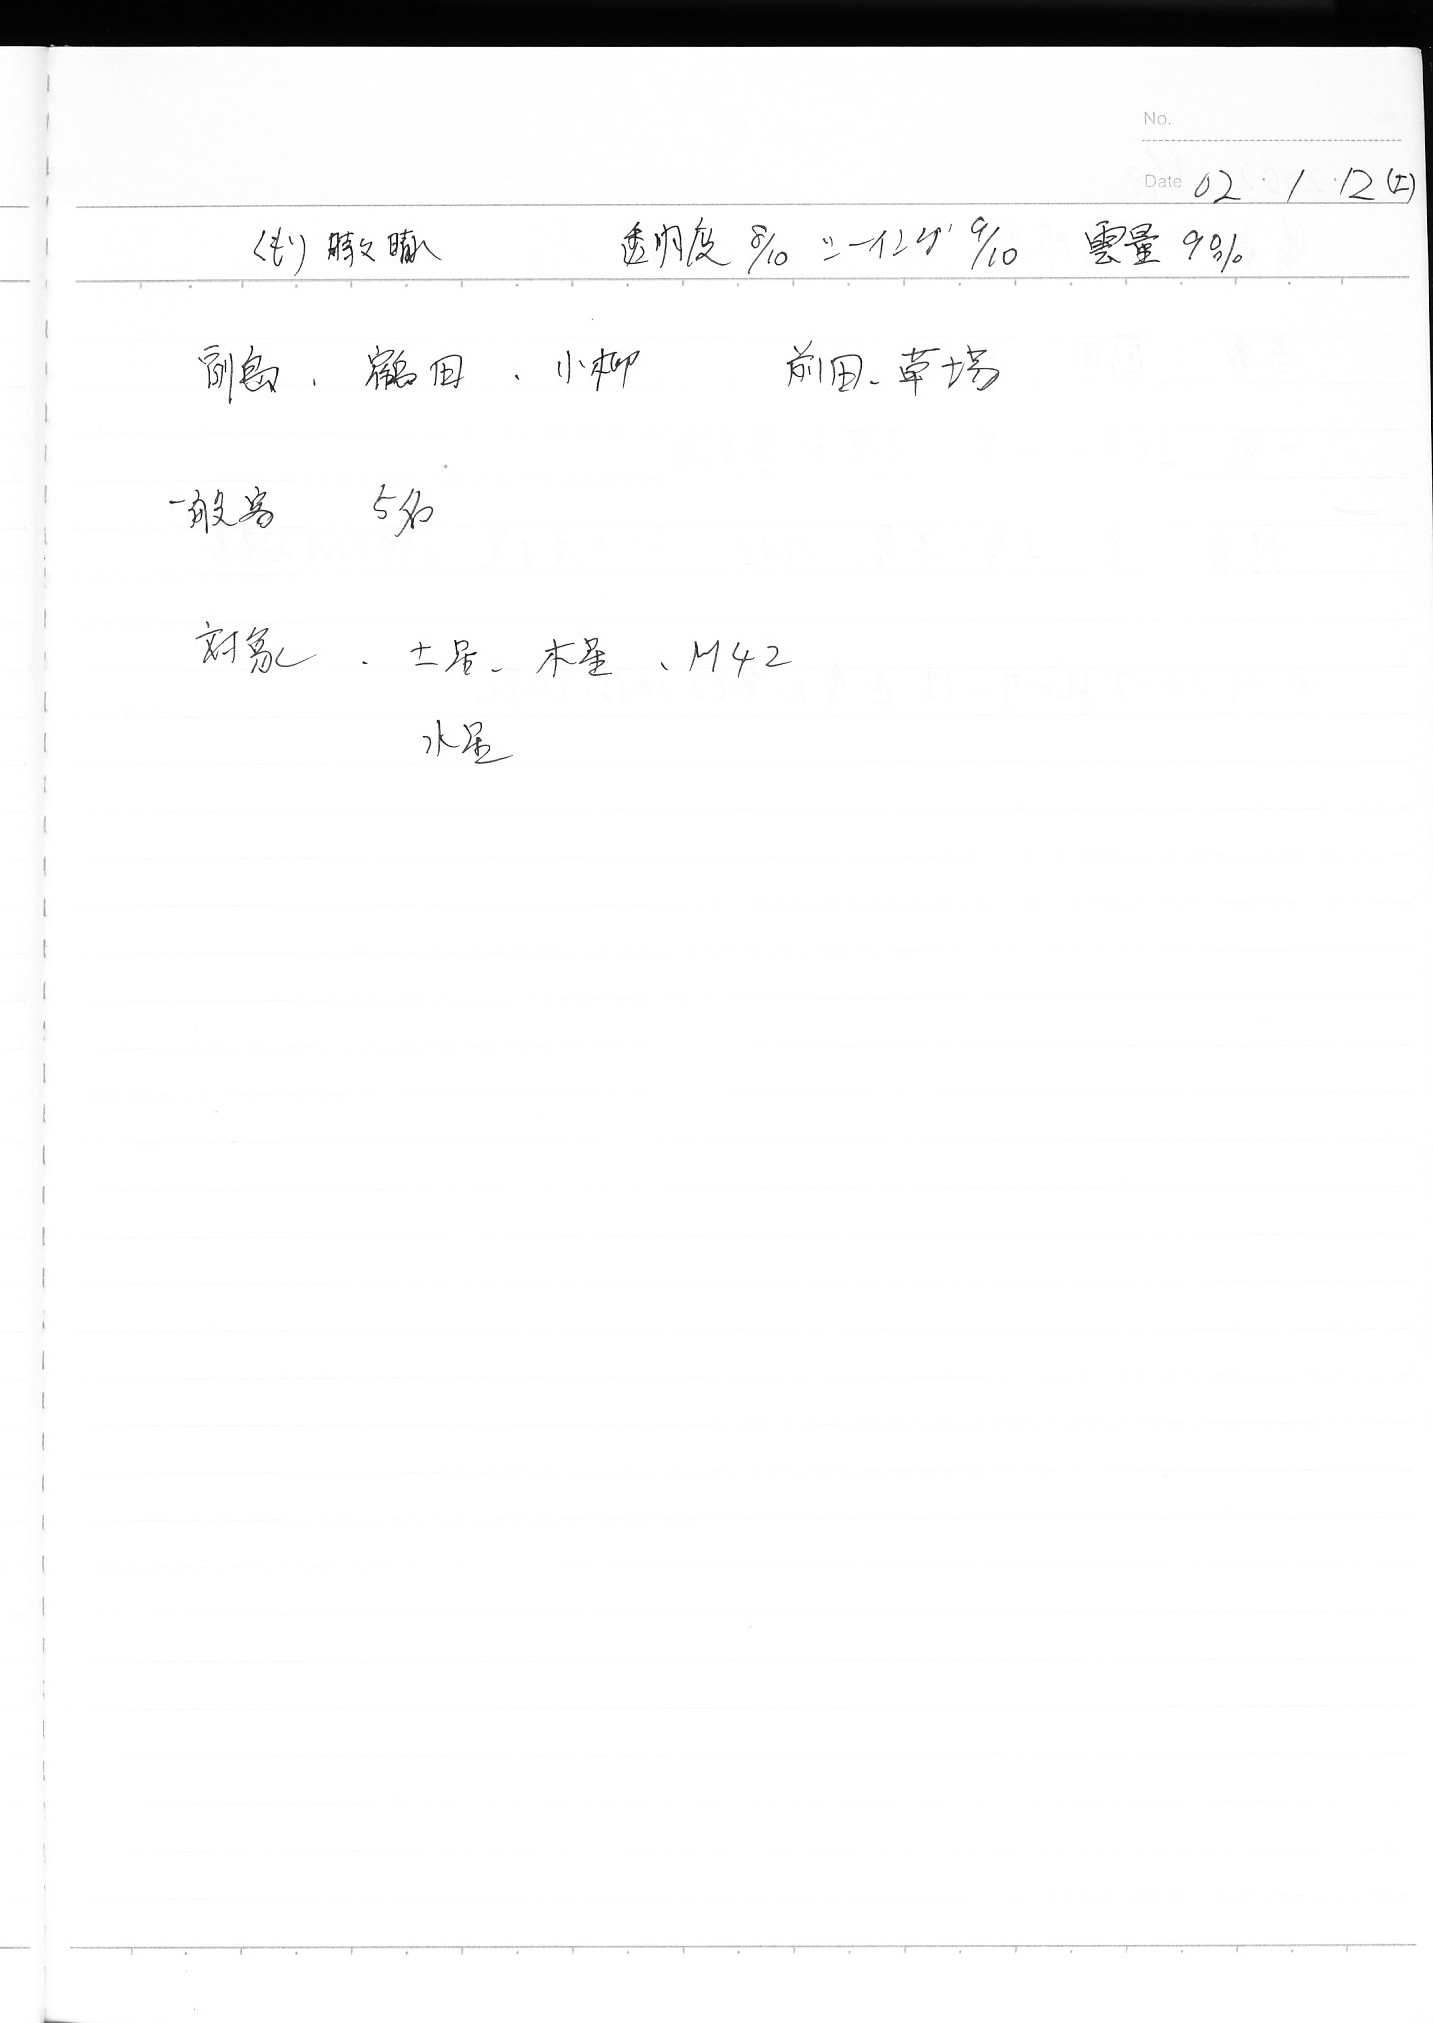 No.
Date 02・1・12(土)
くもり時々晴れ 透明度 8/10 シーイング 9/10 雲量 90%
副島、鶴田、小柳 前田、草場
一般客 5名
対象、土星、木星、M42
水星